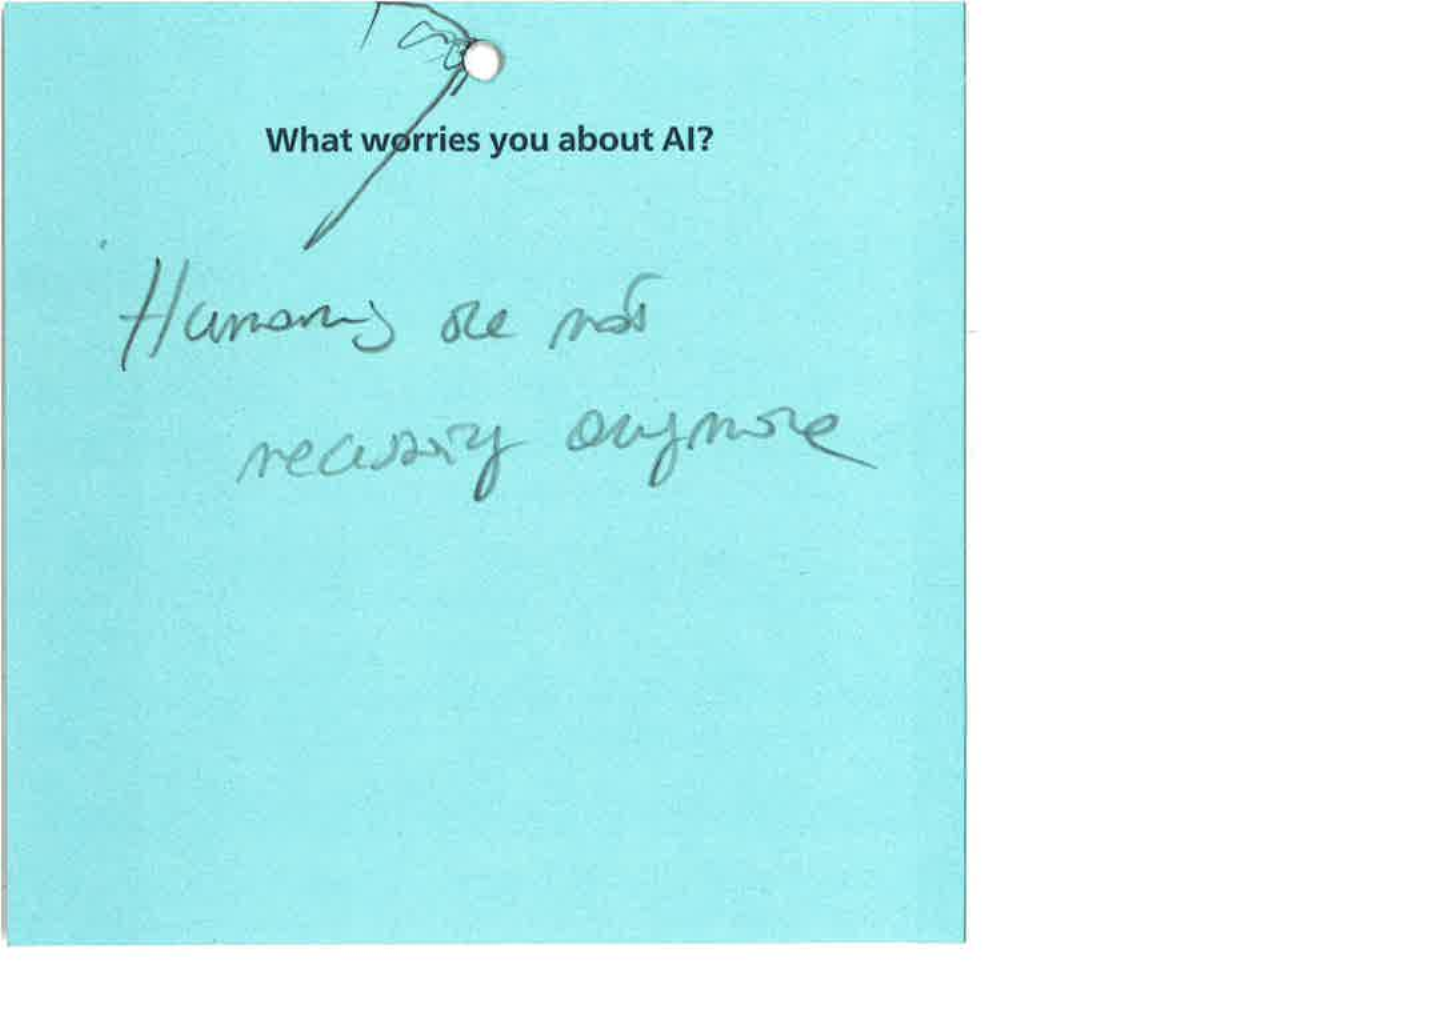 What worries you about AI?
Humans are not
necessity anymore